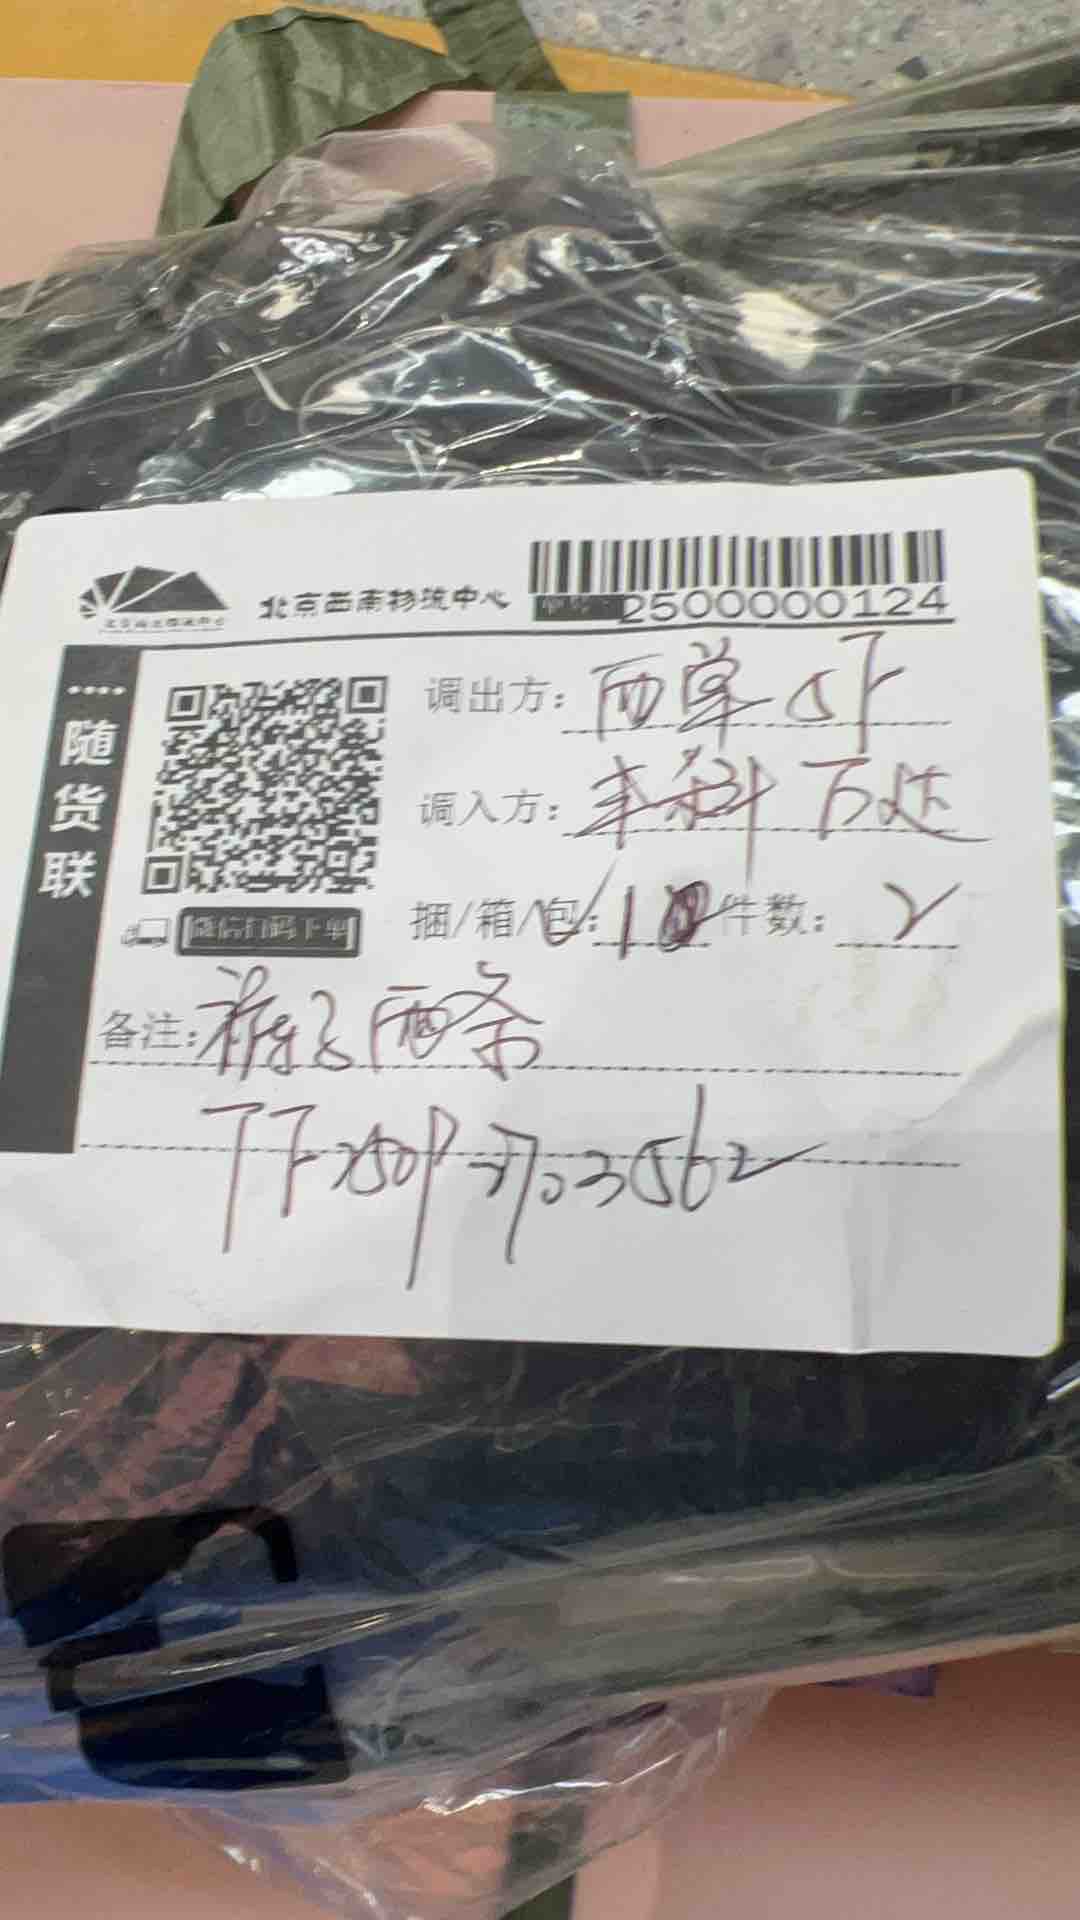 北京西南物流中心
2500000124
随货联
调出方：西单 5F
调入方：丰科万达
捆/箱/包：1 件数：2
微信扫码下单
备注：裤子两条
TF2509